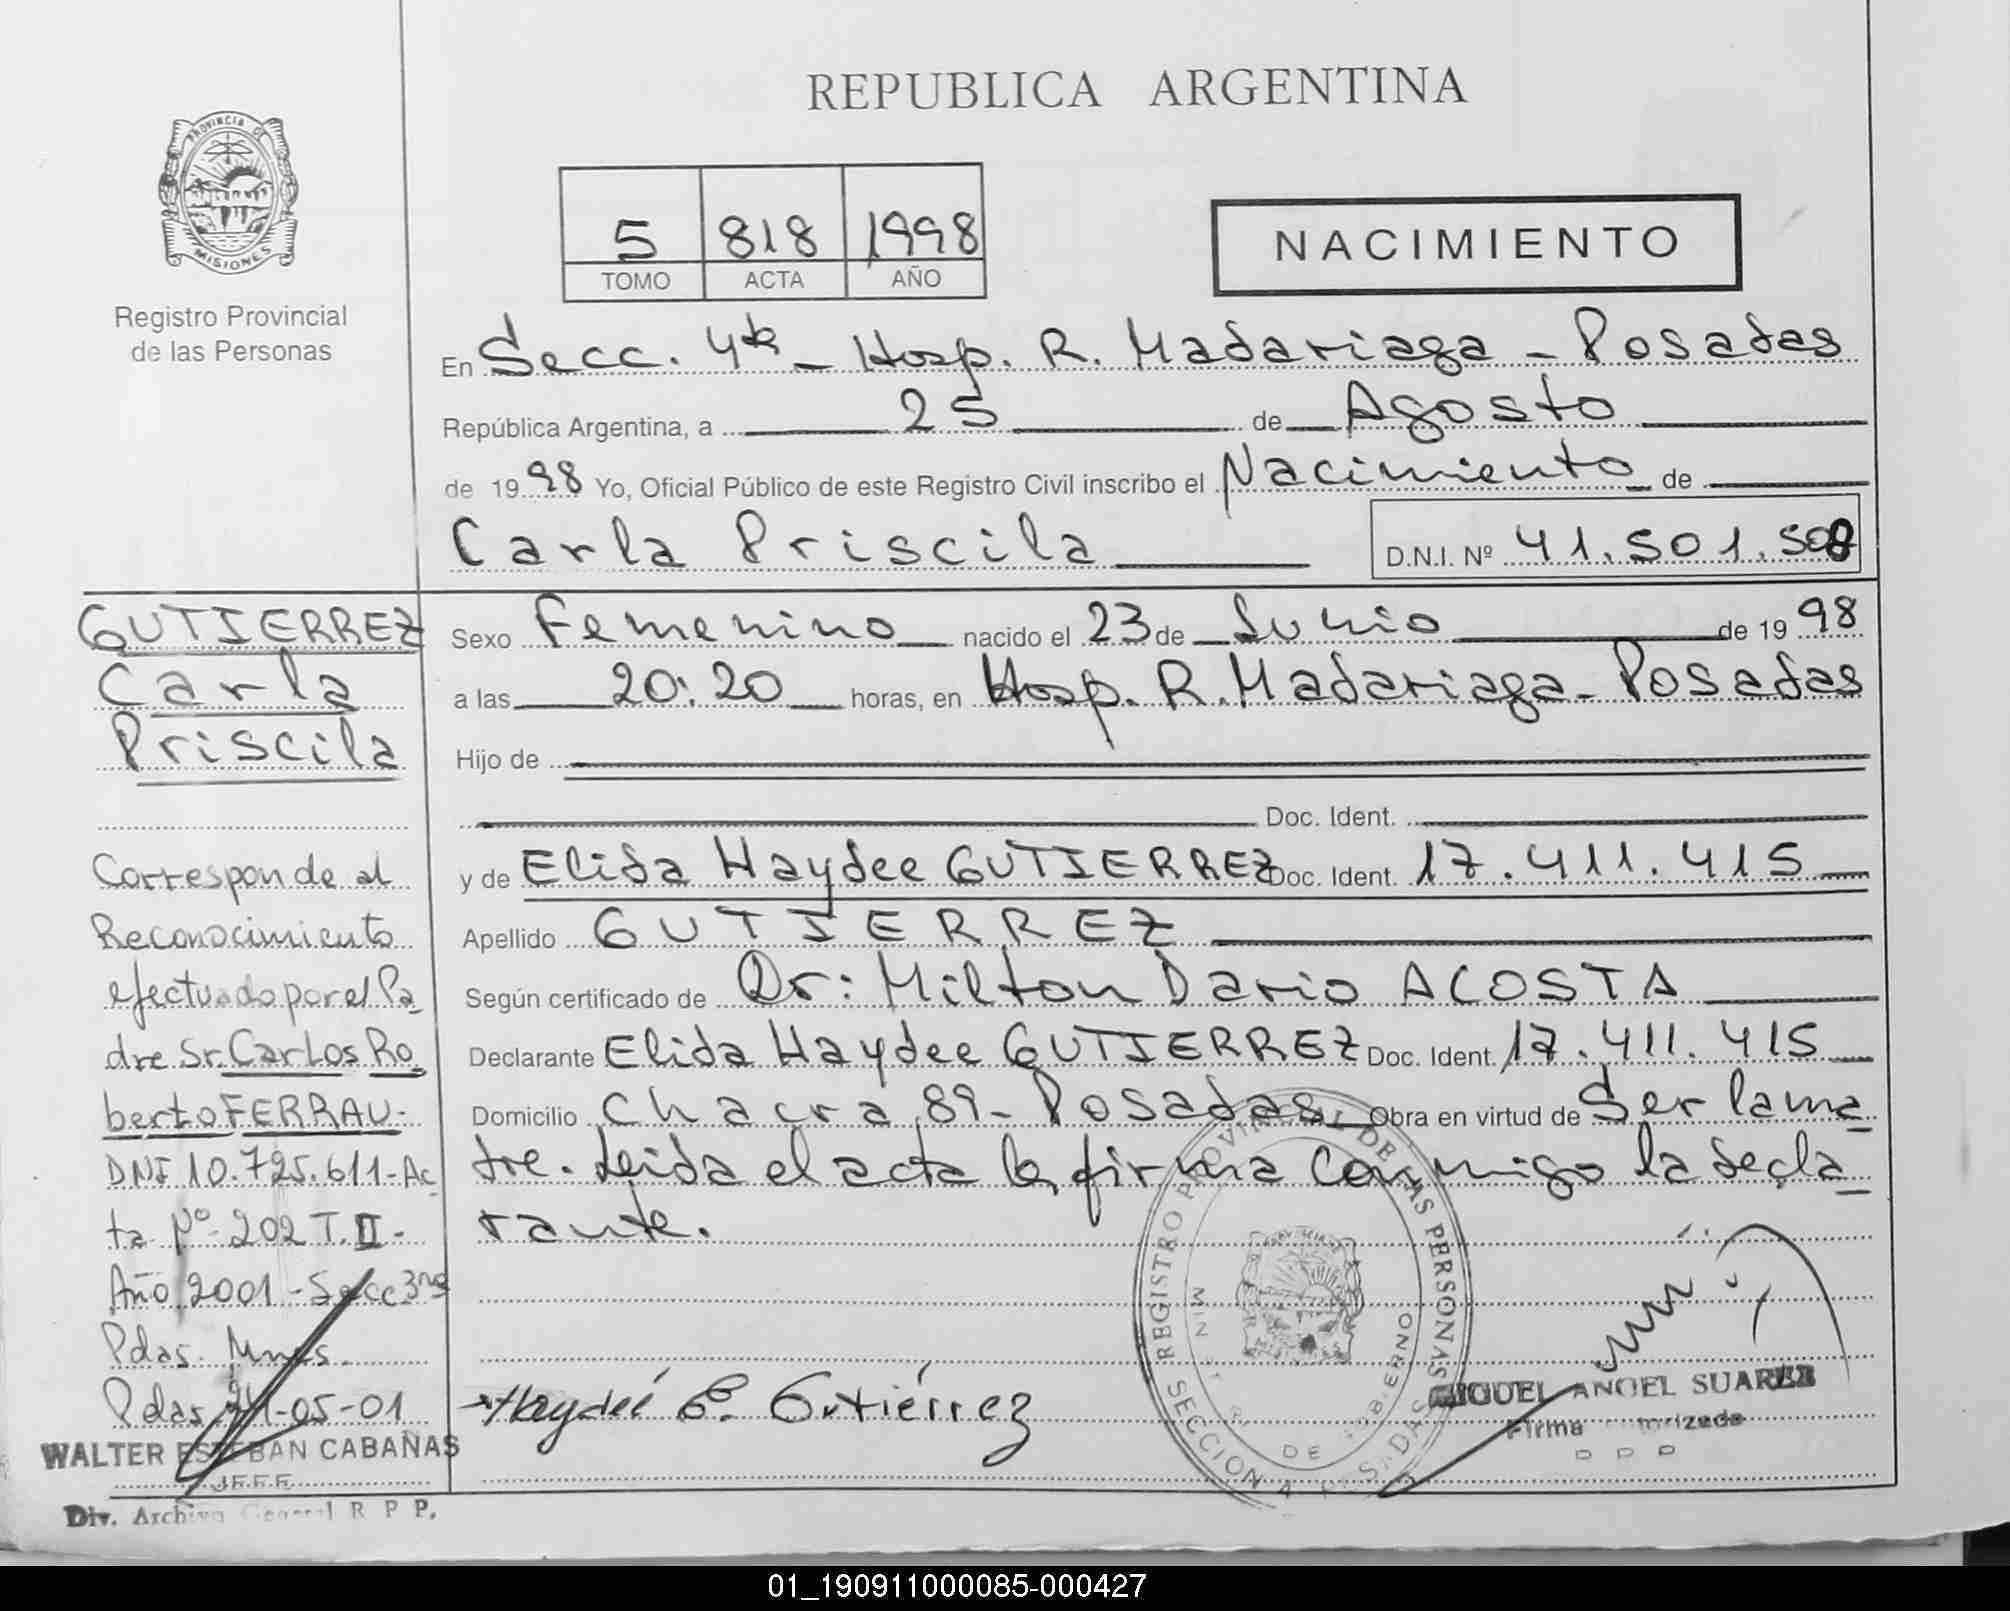 REPUBLICA ARGENTINA
PROVINCIA DE
MISIONES
Registro Provincial
de las Personas
5 818 1998
TOMO ACTA AÑO
NACIMIENTO
En Secc. 4ta - Hosp. R. Madariaga - Posadas
República Argentina, a 25 de Agosto
de 1998 Yo, Oficial Público de este Registro Civil inscribo el Nacimiento de
Carla Priscila D.N.I. Nº 41.501.508
Sexo Femenino nacido el 23 de Junio de 1998
a las 20:20 horas, en Hosp. R. Madariaga - Posadas
Hijo de
Doc. Ident.
y de Elida Haydee GUTIERREZ Doc. Ident. 17.411.415
Apellido GUTIERREZ
Según certificado de Dr: Milton Dario ACOSTA
Declarante Elida Haydee GUTIERREZ Doc. Ident. 17.411.415
Domicilio Chacra 89 - Posadas Obra en virtud de Ser la ma
dre. Leida el acta la firma conmigo la decla
rante.
Haydeé E. Gutiérrez
REGISTRO PROVINCIAL DE LAS PERSONAS
SECCION 4 POSADAS
DE GOBIERNO
MIGUEL ANGEL SUAREZ
Firma Autorizada
GUTIERREZ
Carla
Priscila
Corresponde al
Reconocimiento
efectuado por el Pa
dre Sr. Carlos Ro
berto FERRAU-
DNI 10.725.611-Ac
ta Nº 202 T. II-
Año 2001 - Secc 3ra
Pdas. Mnes.
Pdas, 24-05-01
WALTER ESTEBAN CABAÑAS
JEFE
Div. Archivo General R P P.
01_190911000085-000427